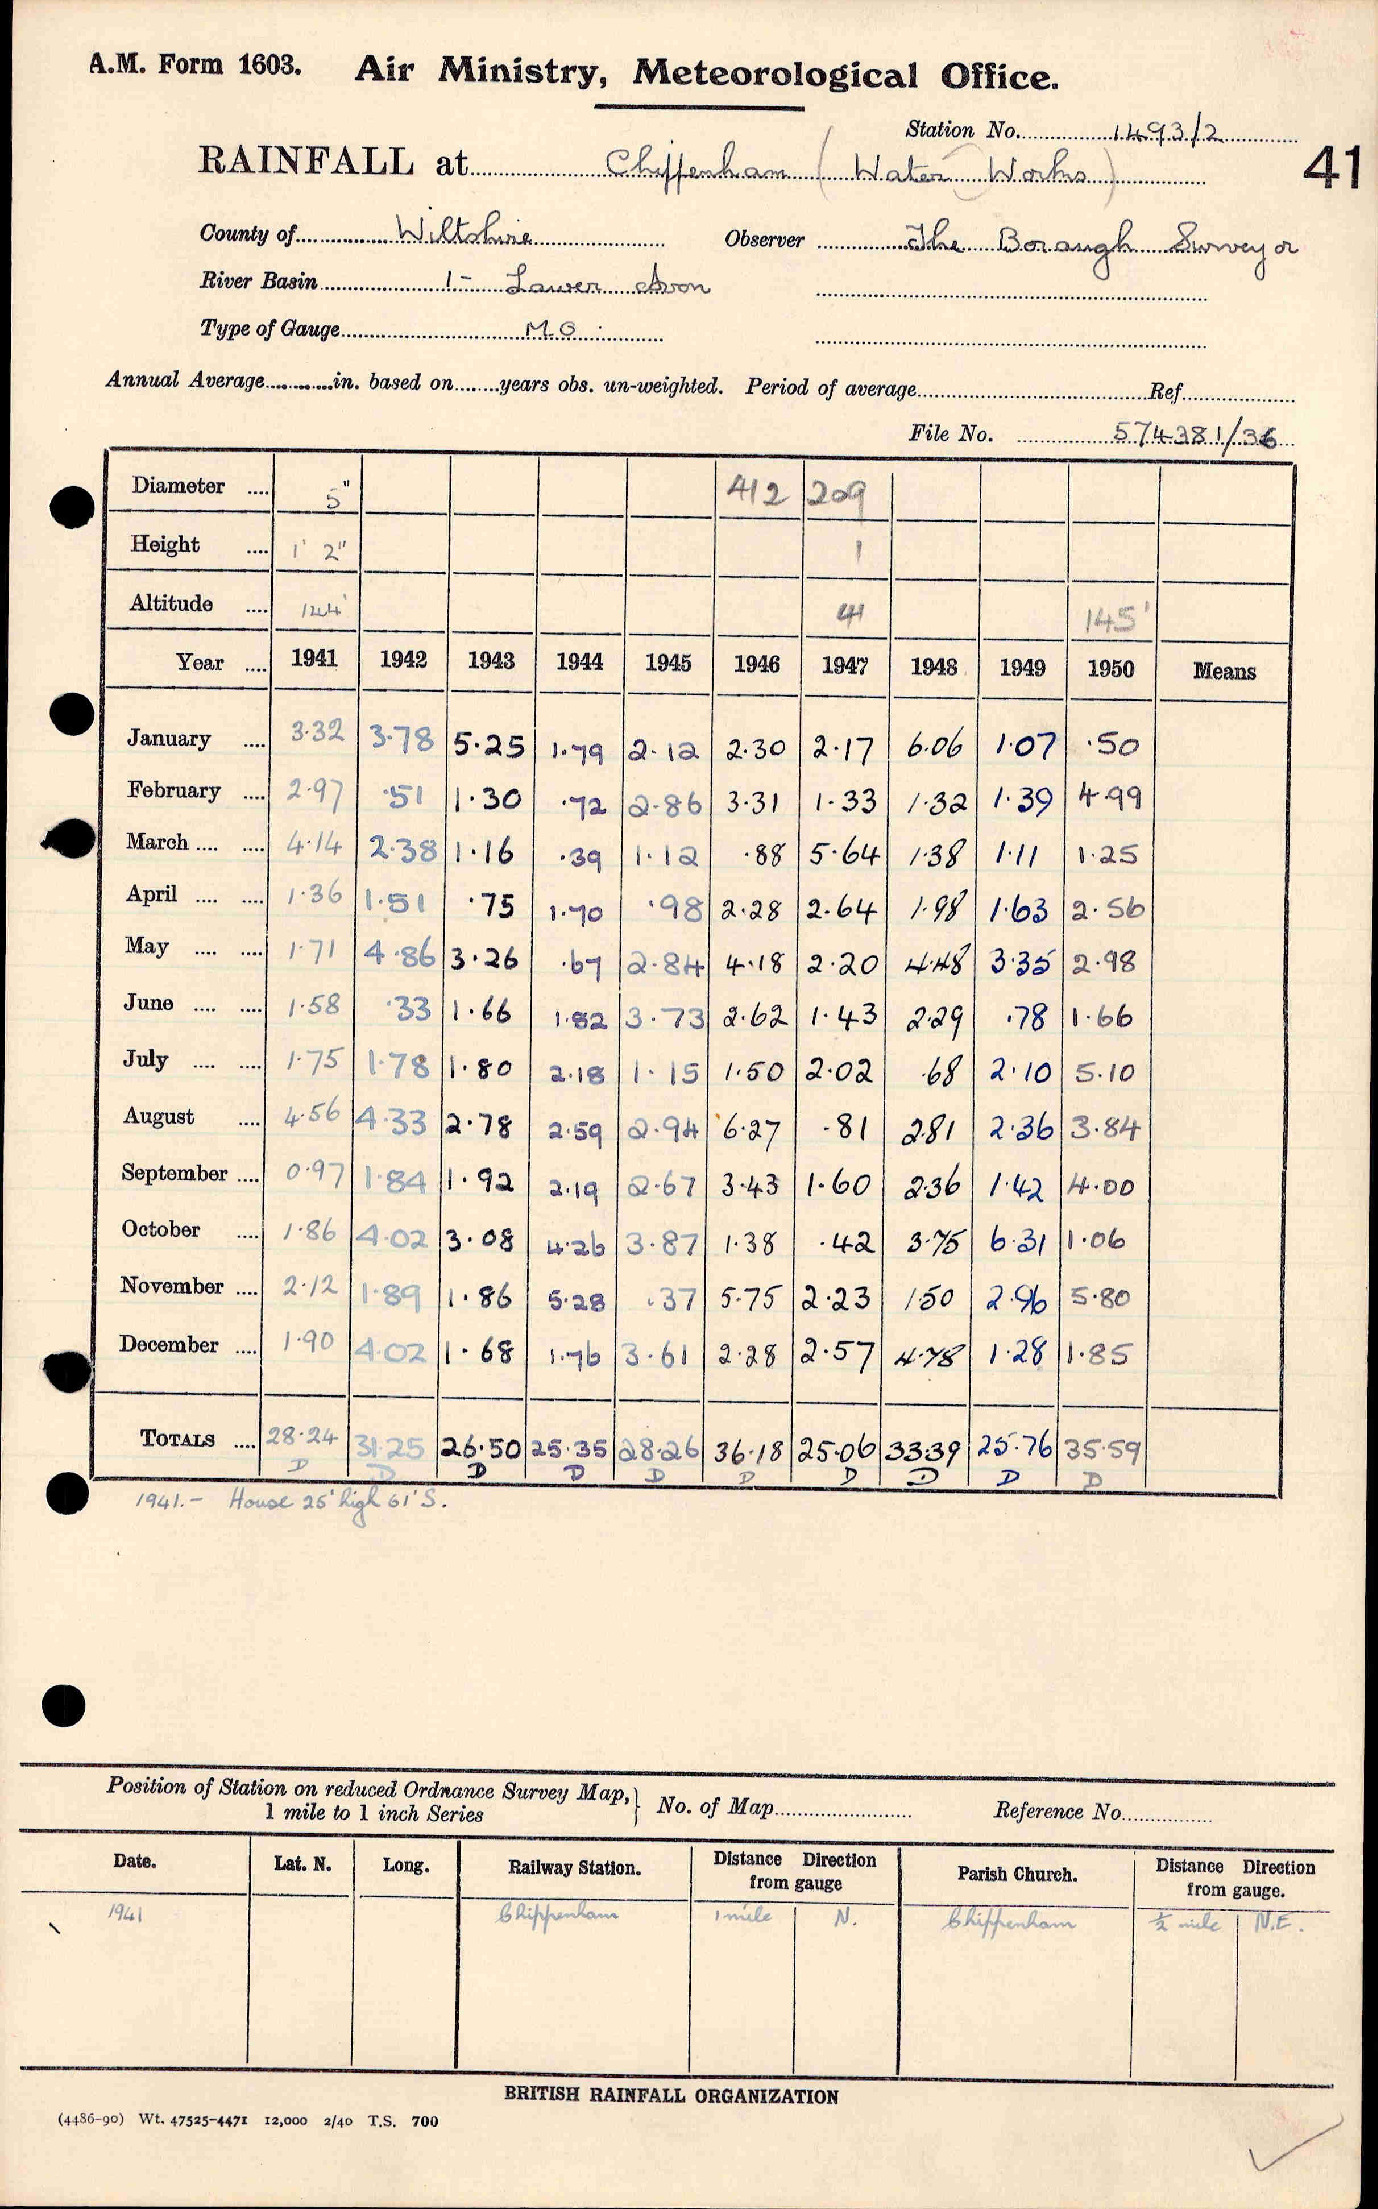 A.M. Form 1603. Air Ministry, Meteorological Office.
Station No. 1493/2
RAINFALL at Chippenham (Water Works)
41
County of Wiltshire Observer The Borough Surveyor
River Basin 1- Lower Avon
Type of Gauge M.O.
Annual Average in. based on years obs. un-weighted. Period of average Ref
File No. 574381/36
Diameter 5" 412 209
Height 1' 2" 1
Altitude 144' 41 145'
Year 1941 1942 1943 1944 1945 1946 1947 1948 1949 1950 Means
January 3.32 3.78 5.25 1.79 2.12 2.30 2.17 6.06 1.07 .50
February 2.97 .51 1.30 .72 2.86 3.31 1.33 1.32 1.39 4.99
March 4.14 2.38 1.16 .39 1.12 .88 5.64 1.38 1.11 1.25
April 1.36 1.51 .75 1.70 .98 2.28 2.64 1.98 1.63 2.56
May 1.71 4.86 3.26 .67 2.84 4.18 2.20 4.48 3.35 2.98
June 1.58 .33 1.66 1.82 3.73 2.62 1.43 2.29 .78 1.66
July 1.75 1.78 1.80 2.18 1.15 1.50 2.02 .68 2.10 5.10
August 4.56 4.33 2.78 2.59 2.94 6.27 .81 2.81 2.36 3.84
September 0.97 1.84 1.92 2.19 2.67 3.43 1.60 2.36 1.42 4.00
October 1.86 4.02 3.08 4.26 3.87 1.38 .42 3.75 6.31 1.06
November 2.12 1.89 1.86 5.28 .37 5.75 2.23 1.50 2.96 5.80
December 1.90 4.02 1.68 1.76 3.61 2.28 2.57 4.78 1.28 1.85
TOTALS 28.24 31.25 26.50 25.35 28.26 36.18 25.06 33.39 25.76 35.59
D D D D D D D D D D
1941.- House 25' high 61' S.
Position of Station on reduced Ordnance Survey Map, 1 mile to 1 inch Series } No. of Map Reference No.
Date. Lat. N. Long. Railway Station. Distance Direction from gauge Parish Church. Distance Direction from gauge.
1941 Chippenham 1 mile N. Chippenham ½ mile N.E.
BRITISH RAINFALL ORGANIZATION
(4486-90) Wt. 47525-4471 12,000 2/40 T.S. 700